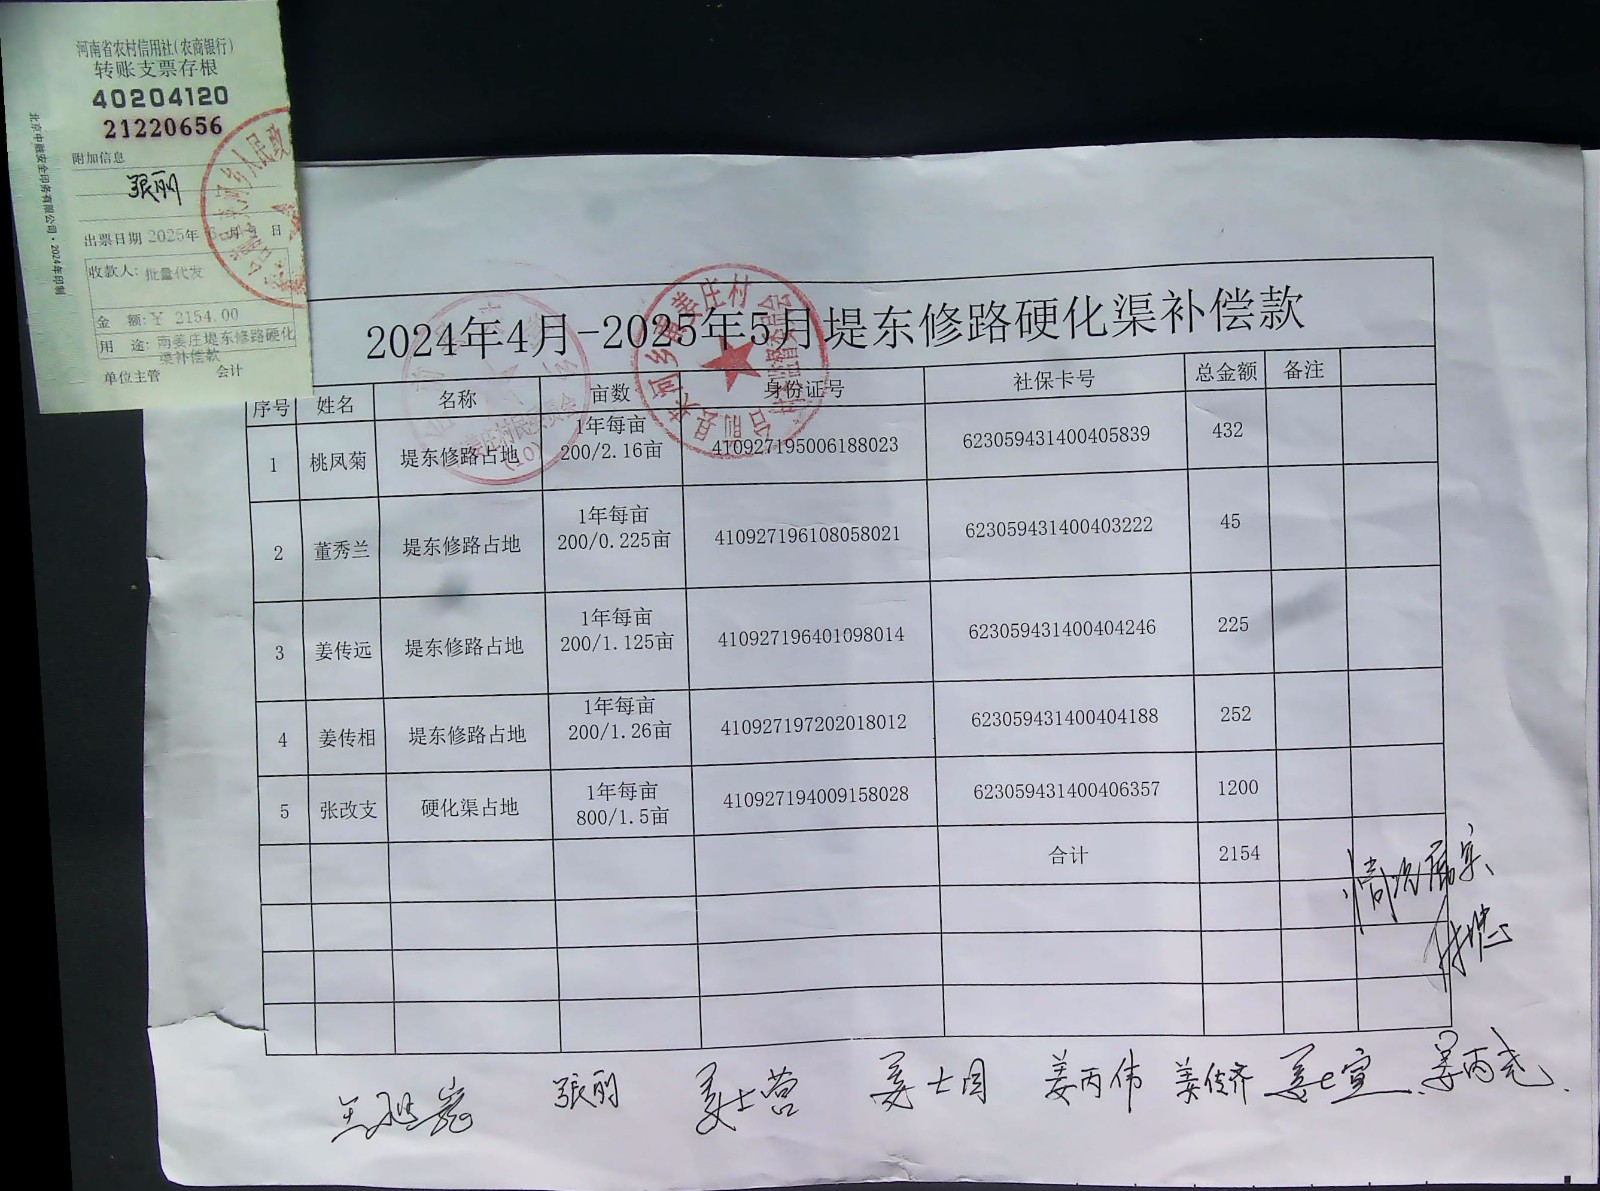 河南省农村信用社(农商银行)
转账支票存根
40204120
21220656
附加信息
張丽
出票日期 2025年 6月 日
收款人: 批量代发
金 额:¥ 2154.00
用 途: 南姜庄堤东修路硬化
渠补偿款
单位主管 会计
北京中融安全印务有限公司·2024年印制
2024年4月-2025年5月堤东修路硬化渠补偿款
序号 姓名 名称 亩数 身份证号 社保卡号 总金额 备注
1 桃凤菊 堤东修路占地 1年每亩 200/2.16亩 410927195006188023 623059431400405839 432
2 董秀兰 堤东修路占地 1年每亩 200/0.225亩 410927196108058021 623059431400403222 45
3 姜传远 堤东修路占地 1年每亩 200/1.125亩 410927196401098014 623059431400404246 225
4 姜传相 堤东修路占地 1年每亩 200/1.26亩 410927197202018012 623059431400404188 252
5 张改支 硬化渠占地 1年每亩 800/1.5亩 410927194009158028 623059431400406357 1200
合计 2154
情况属实
張丽 姜士营 姜士周 姜丙伟 姜传齐 姜丙尧